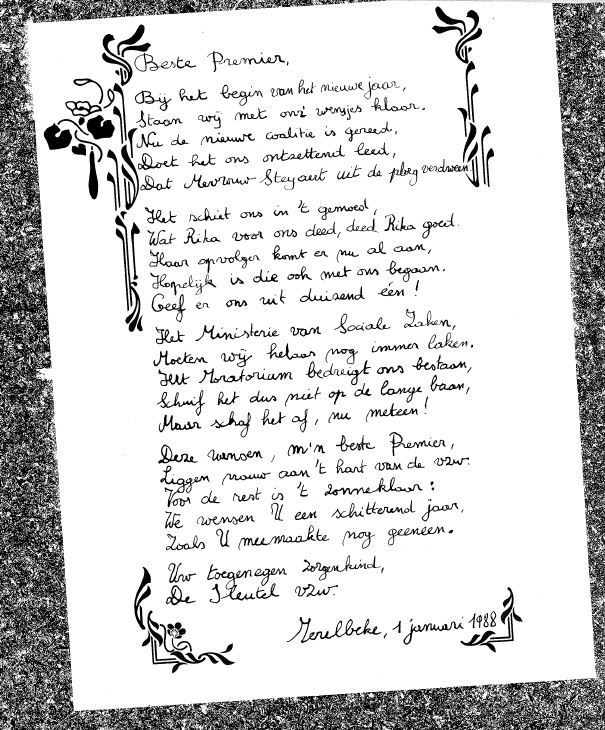 Beste Premier,
Bij het begin van het nieuwe jaar,
Staan wij met onz' wensjes klaar.
Nu de nieuwe coalitie is gereed,
Doet het ons ontzettend leed,
Dat Mevrouw Steyaert uit de ploeg verdween.
Het schiet ons in 't gemoed,
Wat Rika voor ons deed, deed Rika goed.
Haar opvolger komt er nu al aan,
Hopelijk is die ook met ons begaan.
Geef er ons uit duizend één!
Het Ministerie van Sociale Zaken,
Moeten wij helaas nog immer laken.
Het Moratorium bedreigt ons bestaan,
Schuif het dus niet op de lange baan,
Maar schaf het af, nu meteen!
Deze wensen, m'n beste Premier,
Liggen nauw aan 't hart van de vzw.
Voor de rest is 't zonneklaar:
We wensen U een schitterend jaar,
Zoals U meemaakte nog geneen.
Uw toegenegen zorgenkind,
De Sleutel vzw.
Merelbeke, 1 januari 1988